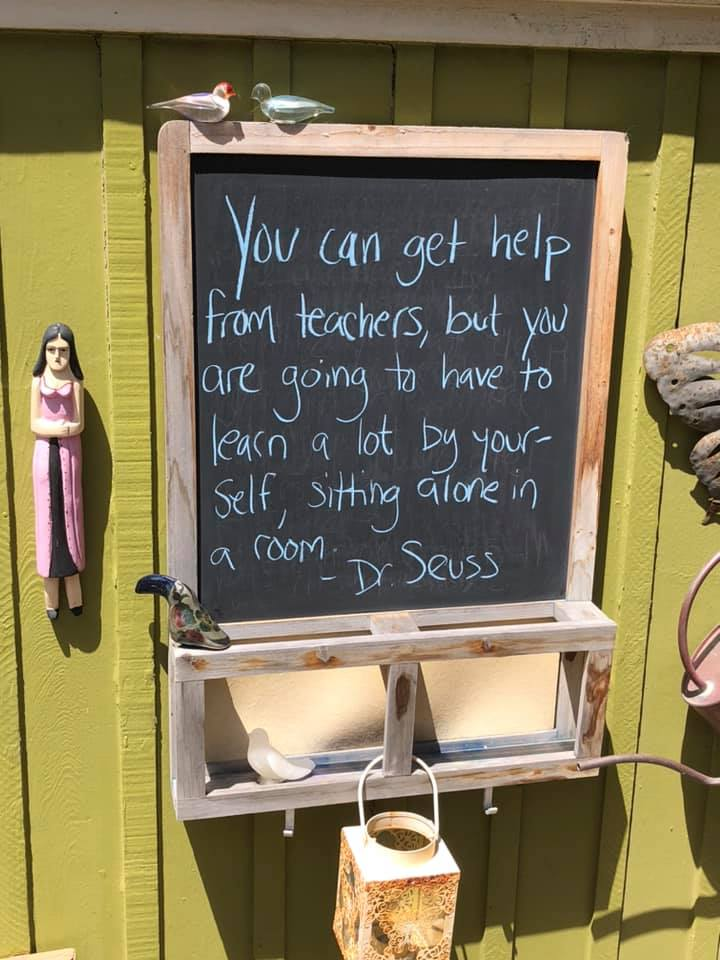 You can get help
from teachers, but you
are going to have to
learn a lot by your-
self, sitting alone in
a room.
- Dr. Seuss